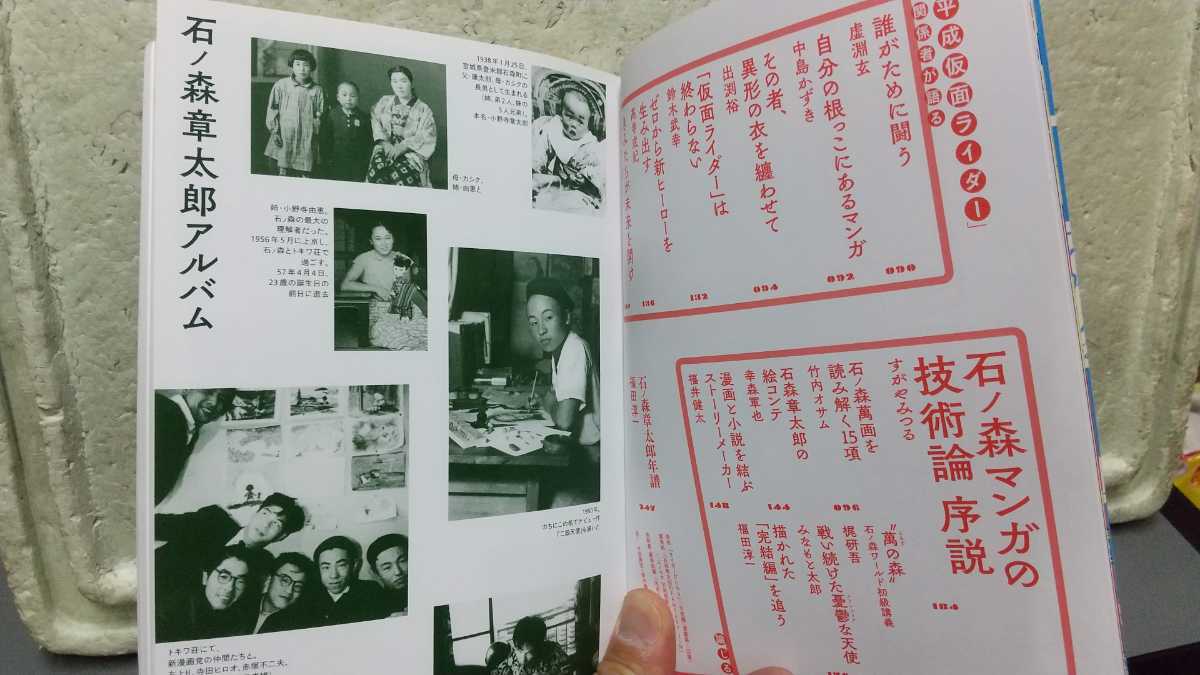 石ノ森章太郎アルバム
1938年1月25日、
宮城県登米郡石森町に
父・康太郎、母・カシクの
長男として生まれる
(姉、弟2人、妹の
5人兄弟)。
本名・小野寺章太郎
母・カシク、
姉・由恵と
姉・小野寺由恵。
石ノ森の最大の
理解者だった。
1956年5月に上京し、
石ノ森とトキワ荘で
過ごす。
57年4月4日、
23歳の誕生日の
前日に逝去
トキワ荘にて、
新漫画党の仲間たちと。
左より、寺田ヒロオ、赤塚不二夫、
平成仮面ライダー」
関係者が語る
誰がために闘う
虚淵玄
090
自分の根っこにあるマンガ
中島かずき
092
その者、
異形の衣を纏わせて
出渕裕
094
「仮面ライダー」は
終わらない
鈴木武幸
132
ゼロから新ヒーローを
生み出す
136
石ノ森マンガの
技術論 序説
すがやみつる
184
石ノ森萬画を
読み解く15項
竹内オサム
096
石森章太郎の
絵コンテ
幸森軍也
144
漫画と小説を結ぶ
ストーリーメーカー
福井健太
148
石ノ森章太郎年譜
福田淳一
247
"萬の森"
石ノ森ワールド初級講義
梶研吾
戦い続けた憂鬱な天使
みなもと太郎
描かれた
「完結編」を追う
福田淳一
論じる